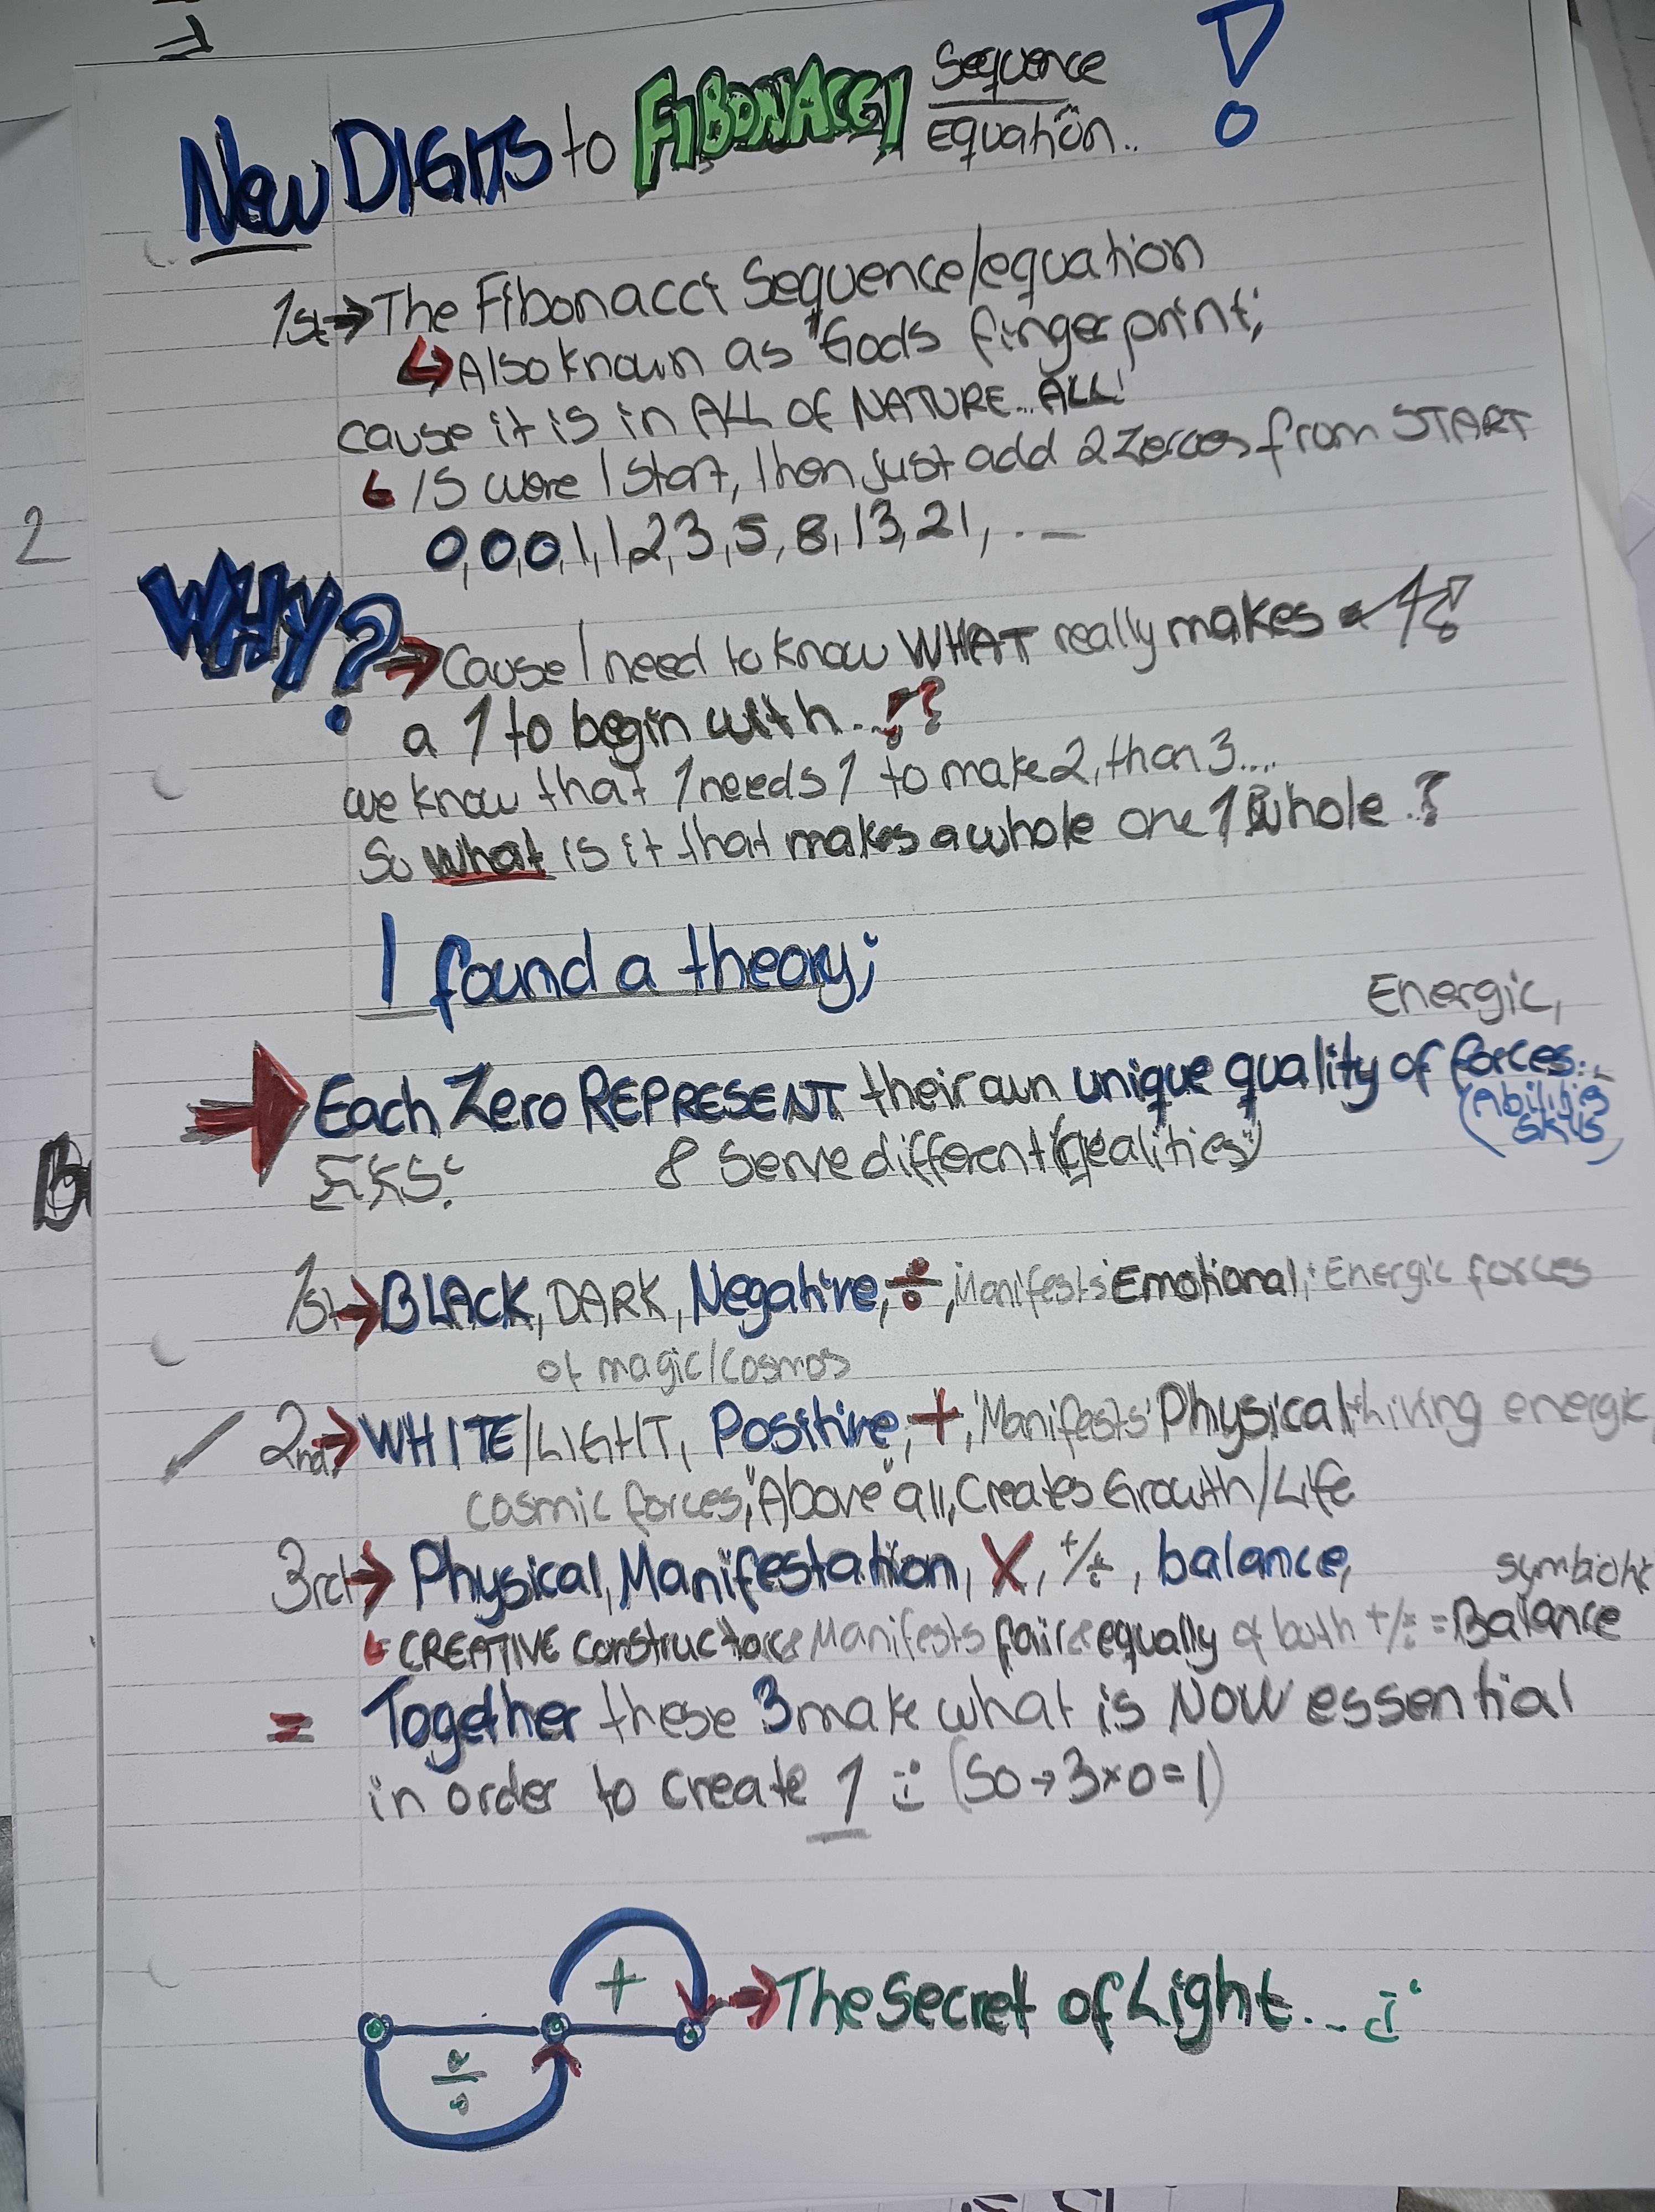 New DIGITS to FIBONACCI Sequence
Equation..
1st → The Fibonacci Sequence/equation
Also known as "Gods fingerprint;
cause it is in ALL OF NATURE... ALL!
IS were I start, then just add 2 zeroes from START
0,0,0,1,1,2,3,5,8,13,21, . _
2
WHY? → Cause I need to know WHAT really makes
a 1 to begin with...??
we know that 1 needs 1 to make 2, than 3....
So what is it that makes a whole one 1 whole ?
I found a theory;
Energic,
Each Zero REPRESENT their own unique quality of forces..
& Serve different (qealities)
1st → BLACK, DARK, Negative, ÷, 'Manifests' Emotional, Energic forces
of magic/cosmos
2nd → WHITE/LIGHT, Positive, +, 'Manifests' Physical living energic
cosmic forces, "Above" all, Creates Growth/Life
3rd → Physical, Manifestation, X, +/÷, balance,
symbiotic
CREATIVE Manifests equally of both +/÷ = Balance
= Together these 3 make what is NOW essential
in order to create 1 (So → 3×0=1)
+
→ The Secret of Light...
÷